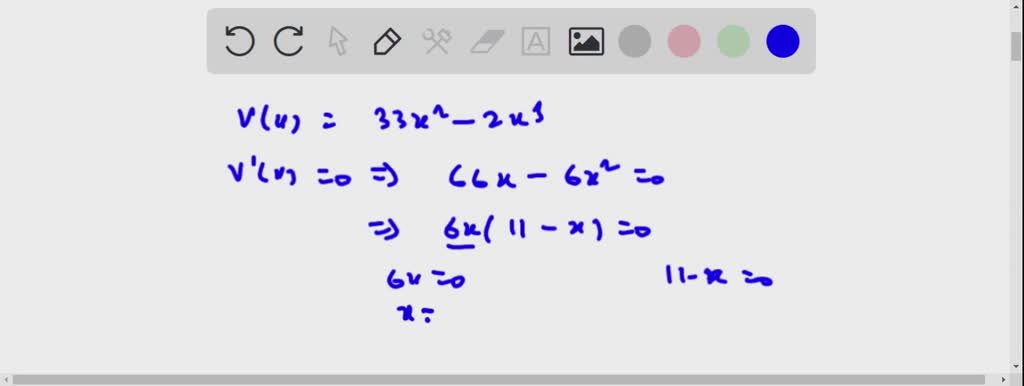 A
V(x) = 33x² - 2x³
V'(x) = 0 ⇒ 66x - 6x² = 0
⇒ 6x(11 - x) = 0
6x = 0 11 - x = 0
x =